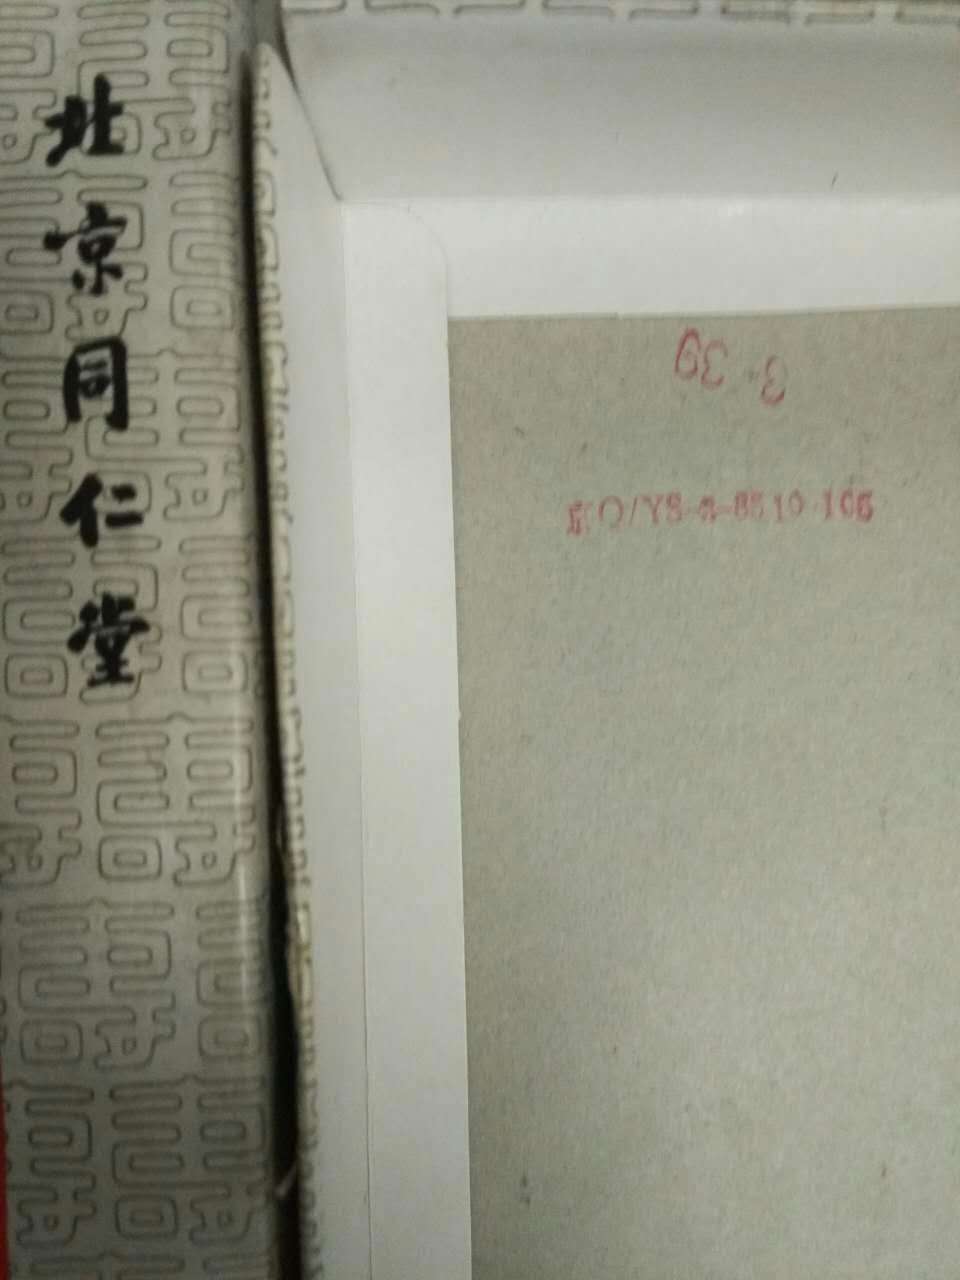 北京同仁堂
3·39
京Q/YS-8-8510-106